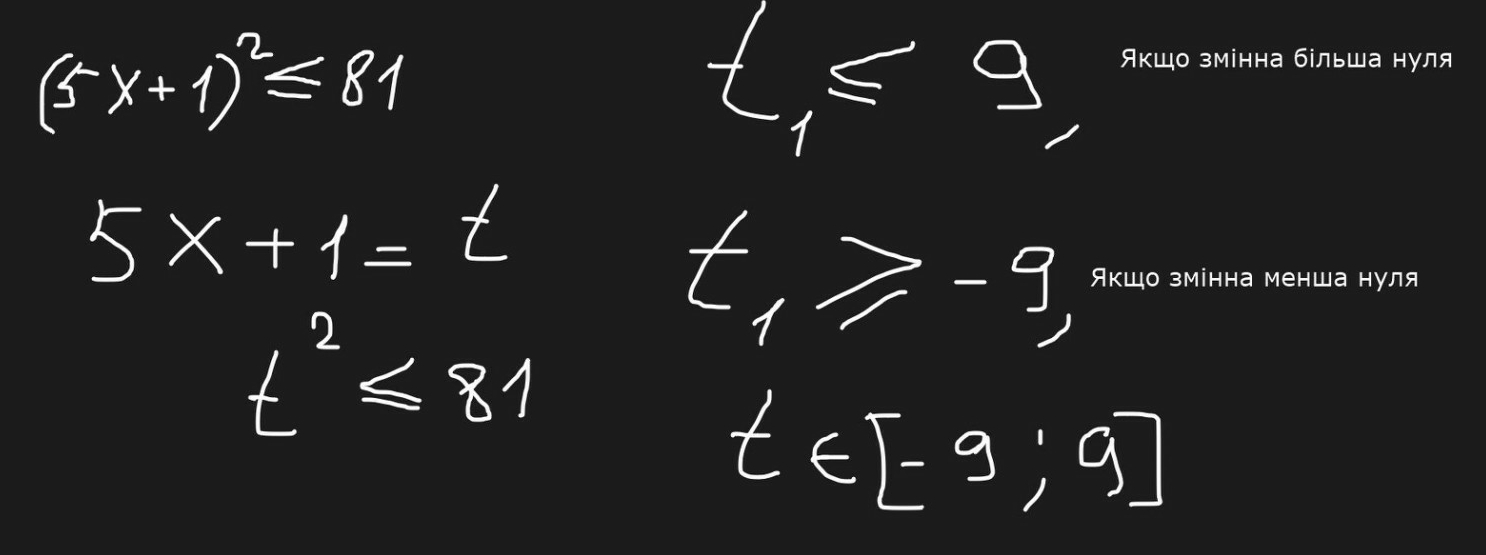 (5x+1)² ≤ 81
5x+1= t
t² ≤ 81
t₁ ≤ 9, Якщо змінна більша нуля
t₁ ⩾ -9, Якщо змінна менша нуля
t ∈ [-9 ; 9]